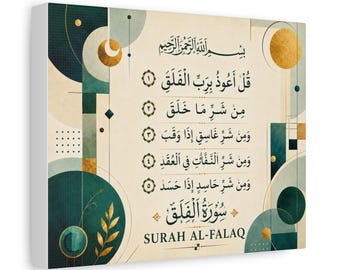 بِسْمِ اللَّهِ الرَّحْمَٰنِ الرَّحِيمِ
١ قُلْ أَعُوذُ بِرَبِّ الْفَلَقِ
٢ مِنْ شَرِّ مَا خَلَقَ
٣ وَمِنْ شَرِّ غَاسِقٍ إِذَا وَقَبَ
٤ وَمِنْ شَرِّ النَّفَّاثَاتِ فِي الْعُقَدِ
٥ وَمِنْ شَرِّ حَاسِدٍ إِذَا حَسَدَ
سُورَةُ الْفَلَقِ
SURAH AL-FALAQ